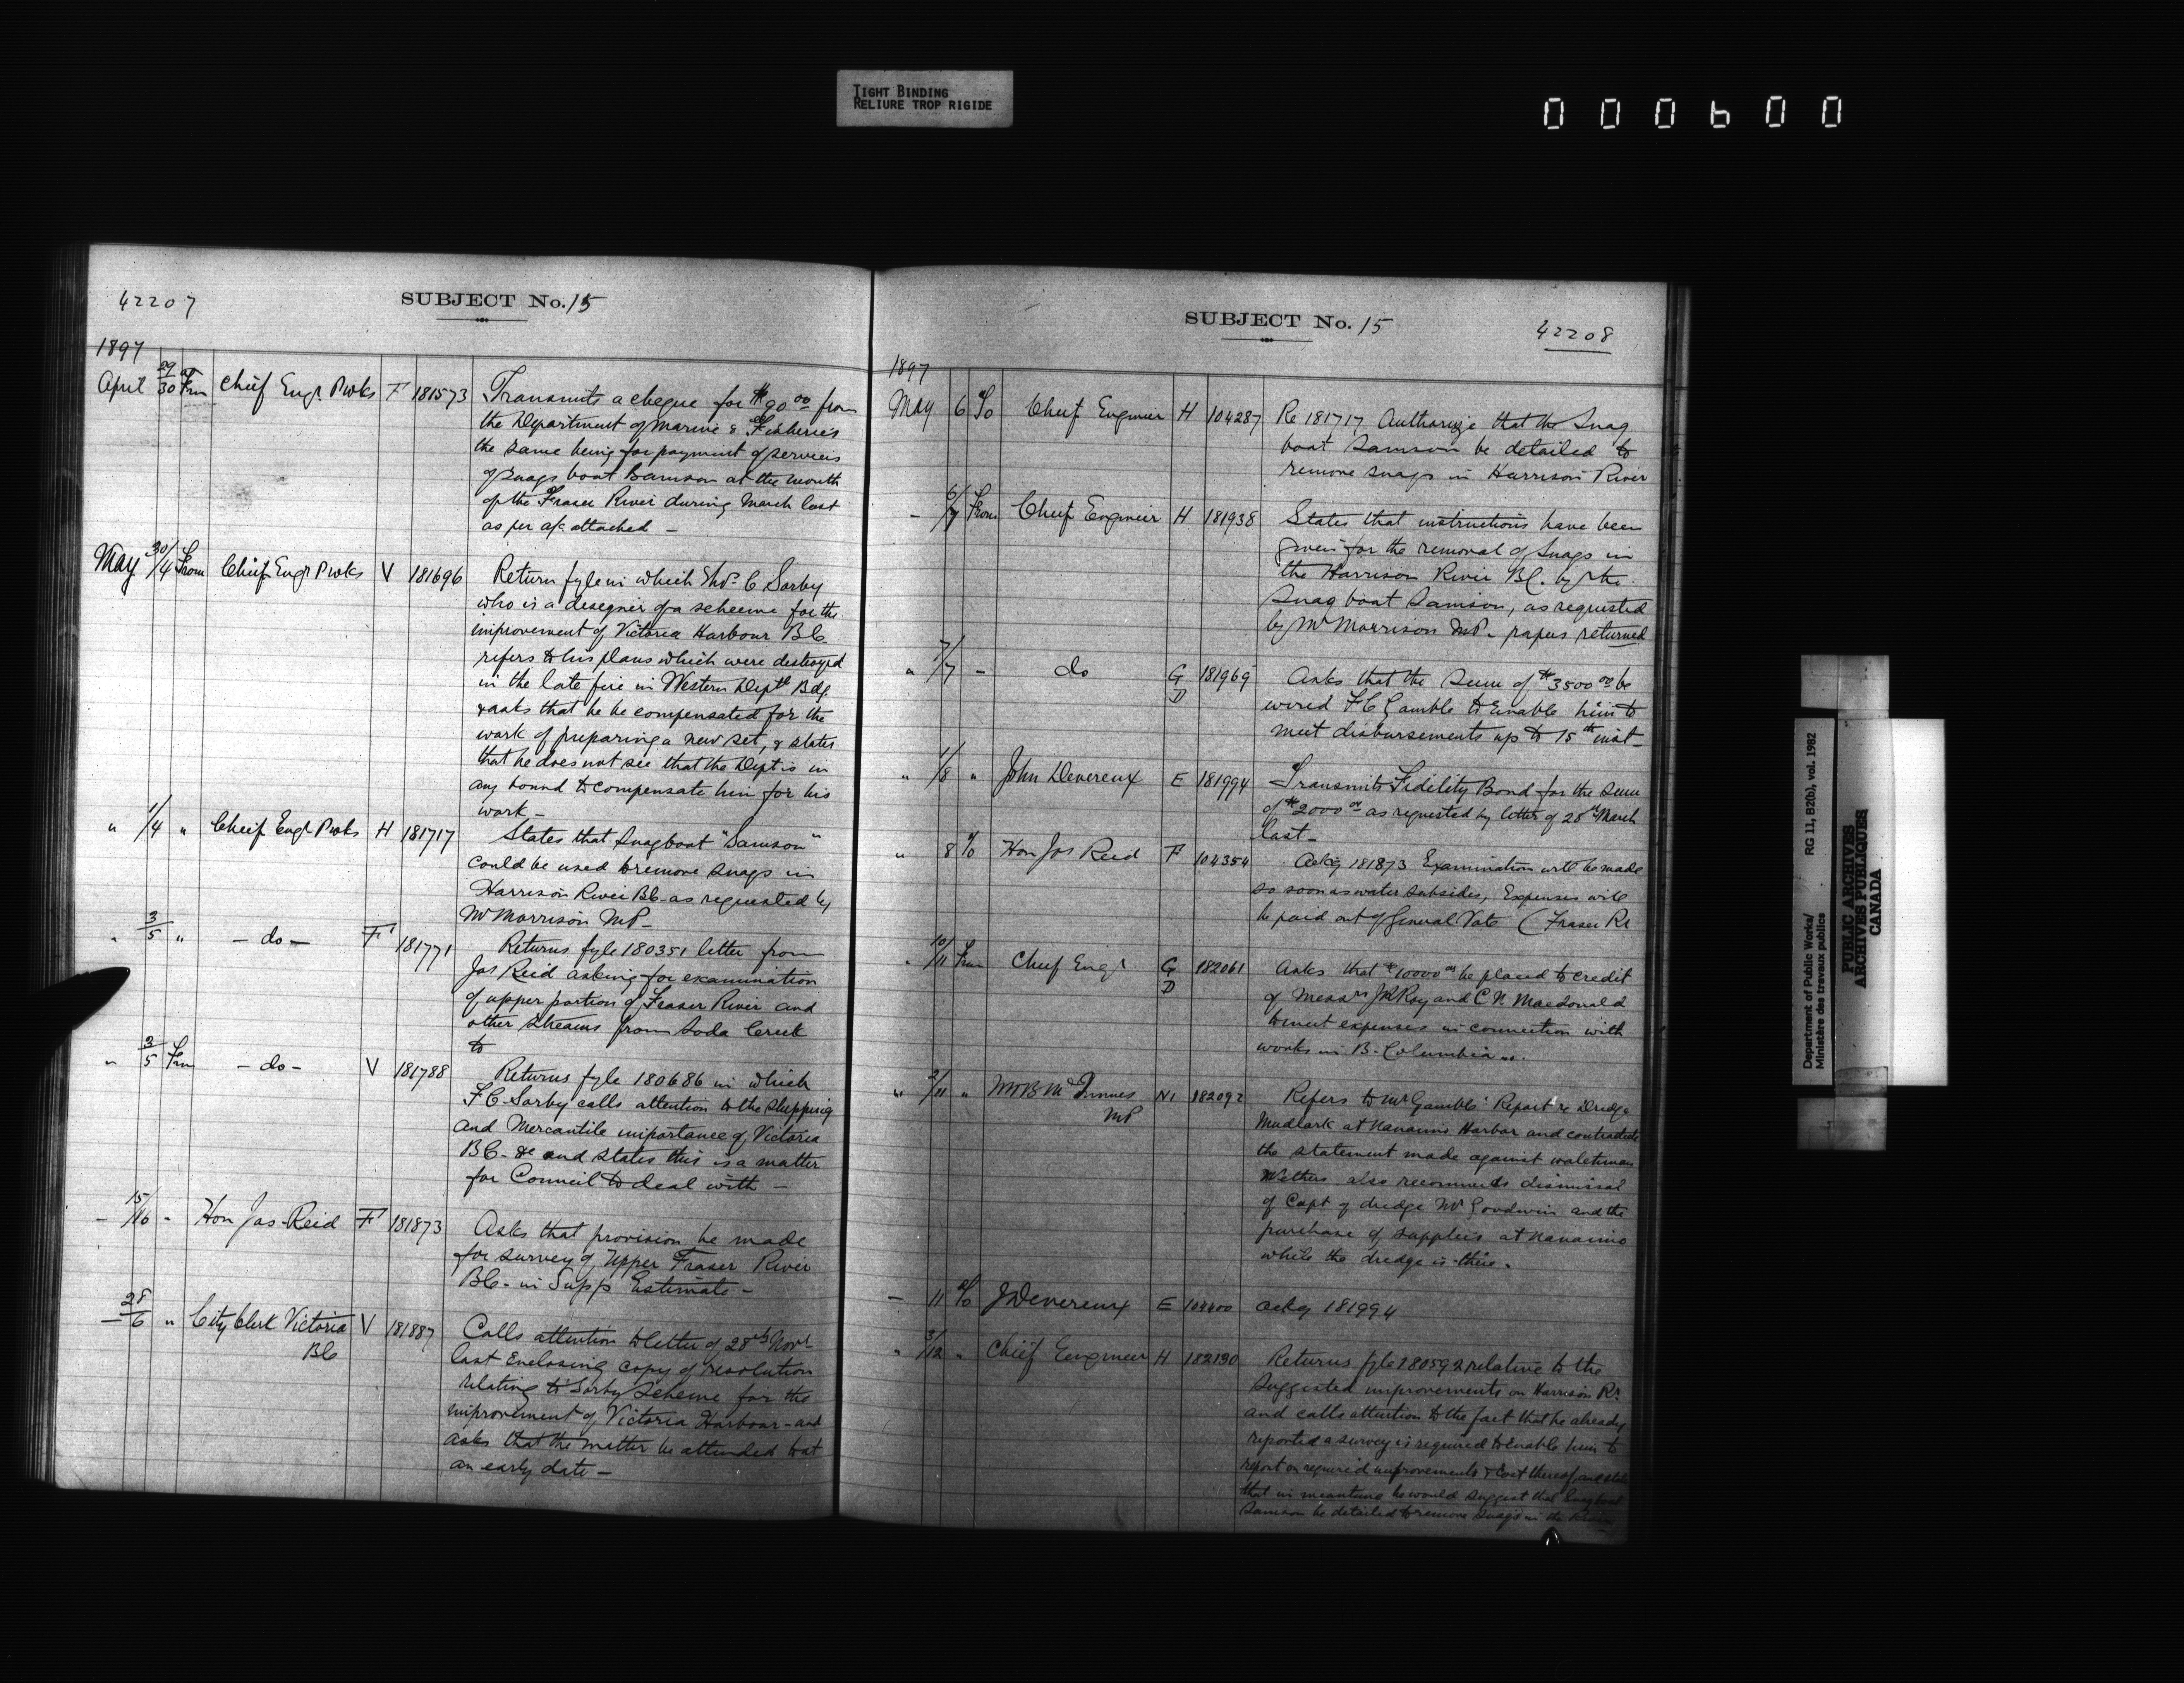 TIGHT BINDING
RELIURE TROP RIGIDE
000600
42207
SUBJECT No. 15
1897
April 29/30 Frm Chief Engr Pwks F 181573 Transmits a cheque for $90.00 from
the Department of Marine & Fisheries
the same being for payment of services
of snags boat Samson at the mouth
of the Fraser River during March last
as per a/c attached —
May 30/4 From Chief Engr Pwks V 181696 Return fyle in which Thos. C Sorby
who is a designer of a scheme for the
improvement of Victoria Harbour BC
refers to his plans which were destroyed
in the late fire in Western Deptl Bdg
& asks that he be compensated for the
work of preparing a new set, & states
that he does not see that the Dept is in
any bound to compensate him for his
work —
" 1/4 " Chief Engr Pwks H 181717 States that Snagboat "Samson"
could be used to remove snags in
Harrison River BC as requested by
Mr Morrison MP —
" 3/5 " — do — F 181771 Returns fyle 180351 letter from
Jas Reid asking for examination
of upper portion of Fraser River and
other streams from Soda Creek
to
" 3/5 Frm — do — V 181788 Returns fyle 180686 in which
F C Sorby calls attention to the shipping
and Mercantile importance of Victoria
BC - &c and states this is a matter
for Council to deal with —
— 15/16 - Hon Jas Reid F 181873 Asks that provision be made
for survey of Upper Fraser River
BC - in Supp Estimate —
— 28/6 " City Clerk Victoria V 181887 Calls attention to letter of 28th Novr
BC
last Enclosing copy of resolution
relating to Sorby Scheme for the
improvement of Victoria Harbour - and
asks that the matter be attended to at
an early date —
SUBJECT No. 15
42208
1897
May 6 To Chief Engineer H 104287 Re 181717 Authorize that the Snag
boat Samson be detailed to
remove snags in Harrison River
— 6/7 From Chief Engineer H 181938 States that instructions have been
given for the removal of Snags in
the Harrison River BC. by the
Snag boat Samson, as requested
by Mr Morrison MP. papers returned
" 7/7 - do G D 181969 Asks that the Sum of $3500.00 be
wired F C Gamble to Enable him to
meet disbursements up to 15th inst —
" 1/8 " John Devereux E 181994 Transmits Fidelity Bond for the Sum
of $2000.00 as requested by letter of 28th March
last —
" 8 To Hon Jas Reid F 104354 Ackg 181873 Examination will be made
so soon as water subsides, Expenses will
be paid out of General Vote (Fraser Rr
" 10/11 Frm Chief Engr G D 182061 Asks that $10000.00 be placed to credit
of Messrs J R Roy and C N. Macdonald
to meet expenses in connection with
works in B. Columbia
" 2/11 " WWB McInnes N1 182092 Refers to Mr Gamble Report re Dredge
MP
Mudlark at Nanaimo Harbor and contradicts
the statement made against
also recommends dismissal
of Capt of dredge Mr Goodwin and the
purchase of supplies at Nanaimo
while the dredge is there.
— 11 To J Devereux E 104400 Ackg 181994
" 3/12 " Chief Engineer H 182130 Returns fyle 180592 relative to the
suggested improvements on Harrison Rr.
and calls attention to the fact that he already
reported a survey is required to enable him to
report on required improvements & Cost thereof and
that in meantime he would suggest that Snagboat
Samson be detailed to remove Snags in the River
Department of Public Works/
Ministère des travaux publics
RG 11, B2(b), vol. 1982
PUBLIC ARCHIVES
ARCHIVES PUBLIQUES
CANADA